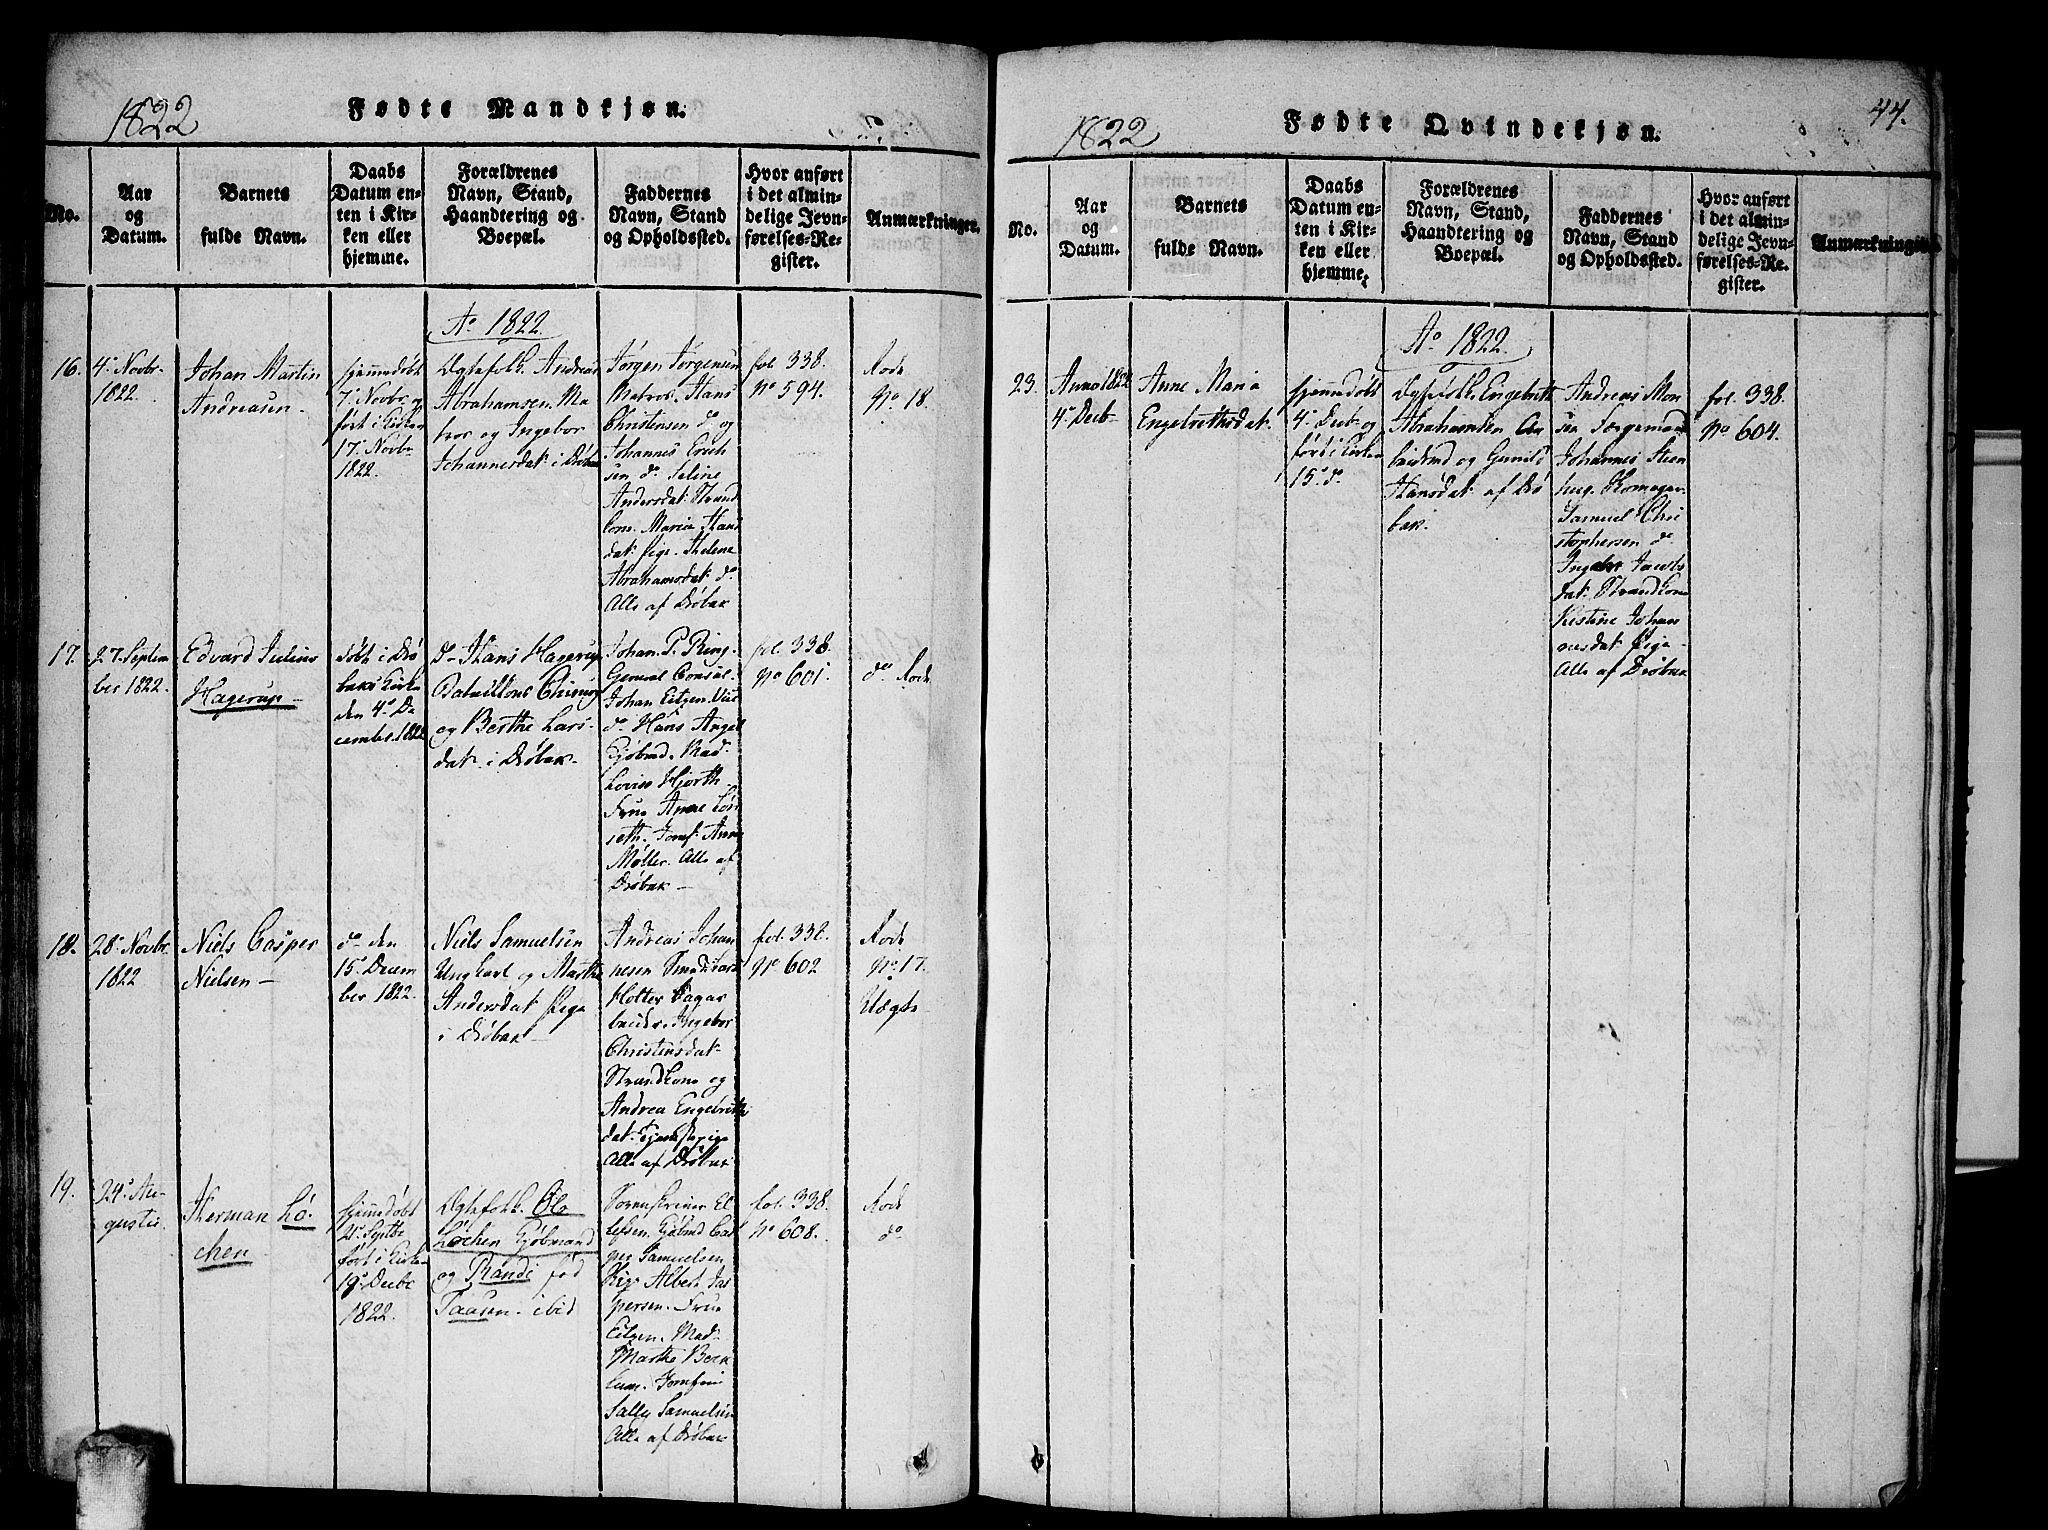 1822
Fødte Mandkjøn.
No.
Aar
og
Datum.
Barnets
fulde Navn.
Daabs
Datum en-
ten i Kir-
ken eller
hjemme.
Forældrenes
Navn, Stand,
Haandtering og
Boepæl.
Faddernes
Navn, Stand
og Opholdssted.
Hvor anført
i det almin-
delige Jevn-
førelses-Re-
gister.
Anmærkninger.
Ao 1822.
16.
4. Novbr.
1822.
Johan Martin
Andreasen
hjemmedøbt
7. Novbr. og
ført i Kirken
17. Novbr
1822.
Ægtefolk. Andreas
Abrahamsen. Ma
tros og Ingebor
Johannesdat. i Drøbak
Jørgen Jørgensen
Matros. Hans
Christensen do og
Johannes Erich
sen do. Seline
Andersdat. Strand
kone. Maria Hans
dat. Pige. Helene
Abrahamsdat. do
Alle af Drøbak
fol. 338.
No 594.
Rode
No. 18.
17.
27. Septem
ber 1822.
Edvard Julius
Hagerup
døbt i Drø
baks Kirke
den 4. De
cember 1822
Do Hans Hagerup
Batallions Chirurg
og Berthe Lars-
dat. i Drøbak
Johan P. Ring.
General Consul.
Johan Eitzen Vice
do. Hans Angel
Kjøbmd. Mad.
Lovise Hjorth
Frue Anne Løs
seth. Jomf. Anne
Møller. Alle af
Drøbak
fol. 338.
No 601.
do Rode
18.
28. Novbr.
1822
Niels Casper
Nielsen
do den
15. Decem
ber 1822.
Niels Samuelsen
Ungkarl og Marthe
Andersdat. Pige
i Drøbak
Andreas Johan
nesen
Holter Dagar
beider. Ingebor
Christensdat.
Strandkone og
Andrea Engebrets
dat. Tjenestepige
Alle af Drøbak
fol. 338.
No 602
Rode
No. 17.
Uægte
19.
24. Au-
gusti
Herman Lø-
chen
hjemmedøbt
21. Septbr
ført i Kirken
19. Decbr
1822.
Ægtefolk. Ole
Løchen Kjøbmand
og Randi fød
Taasen. ibid
Sorenskriver El
lefsen. Kjøbmd Cas
per Samuelsen
Albert Jas
persen. Frue
Eitzen. Mad.
Marthe
Jomfrue
Sally Samuelsen
Alle af Drøbak
fol. 338.
No 608.
Rode
do
1822
Fødte Qvindekjøn.
44.
No.
Aar
og
Datum.
Barnets
fulde Navn.
Daabs
Datum en-
ten i Kir-
ken eller
hjemme.
Forældrenes
Navn, Stand,
Haandtering og
Boepæl.
Faddernes
Navn, Stand
og Opholdssted.
Hvor anført
i det almin-
delige Jevn-
førelses-Re-
gister.
Ao 1822.
23.
Anno 1822
4. Decb
Anne Maria
Engebrethsdat.
hjemmedøbt
4. Decb og
ført i Kirken
15. do.
Ægtefolk. Engebreth
Abrahamsen Ar
beidsmd og Gunild
Hansdat. af Drø
bak.
Andreas Mon
sen
Johannes Steen
hug.
Samuel Chri
stophersen do
Ingebor Jacobs
dat. Strandkone
Kistine Johan
nesdat. Pige
Alle af Drøbak
fol. 338.
No 604.